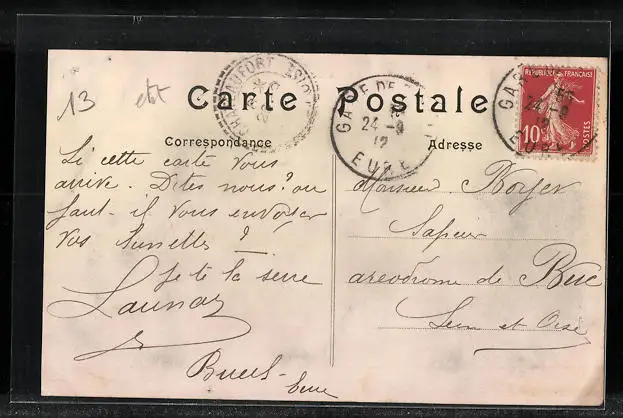 13
Carte Postale
Correspondance
Adresse
Si cette carte vous
arrive. Dites nous? où
faut-il vous envoyer
vos lunettes?
Je te la serre
Launay
Bueil
Eure
Monsieur Noyer
Sapeur
aréodrome de Buc
Seine et Oise
GARE DE
24 -9
12
EURE
GARE
24 -9
12
EURE
REPUBLIQUE FRANÇAISE
10
POSTES